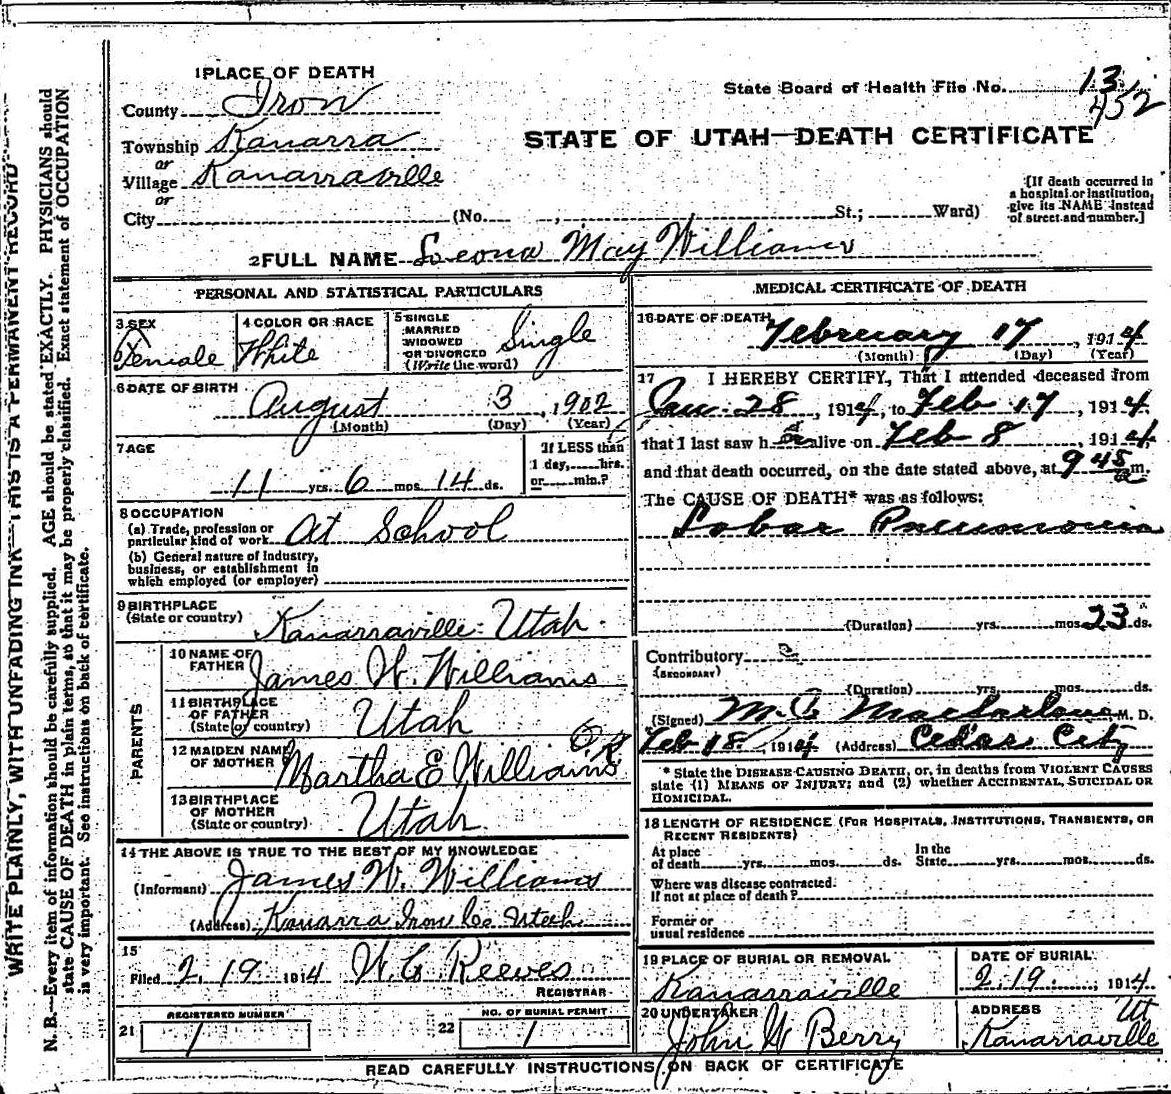 1 PLACE OF DEATH
State Board of Health File No. 13
452
County Iron
Township Kanarra
or
Village Kanarraville
or
City (No. , St.; Ward)
STATE OF UTAH—DEATH CERTIFICATE
[If death occurred in
a hospital or institution,
give its NAME instead
of street and number.]
2 FULL NAME Leona May Williams
PERSONAL AND STATISTICAL PARTICULARS
3 SEX
Female
4 COLOR OR RACE
White
5 SINGLE
MARRIED
WIDOWED
OR DIVORCED
(Write the word)
Single
6 DATE OF BIRTH
August 3, 1902
(Month) (Day) (Year)
7 AGE
11 yrs. 6 mos. 14 ds.
If LESS than
1 day, hrs.
or min.?
8 OCCUPATION
(a) Trade, profession or
particular kind of work At School
(b) General nature of industry,
business, or establishment in
which employed (or employer)
9 BIRTHPLACE
(State or country) Kanarraville Utah.
PARENTS
10 NAME OF
FATHER James W. Williams
11 BIRTHPLACE
OF FATHER
(State or country) Utah
12 MAIDEN NAME
OF MOTHER Martha E Williams
13 BIRTHPLACE
OF MOTHER
(State or country) Utah
14 THE ABOVE IS TRUE TO THE BEST OF MY KNOWLEDGE
(Informant) James W. Williams
(Address) Kanarra Iron Co Utah
15
Filed 2. 19 1914 W. C. Reeves
REGISTRAR
21 REGISTERED NUMBER
1
22 NO. OF BURIAL PERMIT
1
MEDICAL CERTIFICATE OF DEATH
16 DATE OF DEATH
February 17, 1914
(Month) (Day) (Year)
17 I HEREBY CERTIFY, That I attended deceased from
Jan. 28, 1914, to Feb 17, 1914
that I last saw her alive on Feb 8, 1914
and that death occurred, on the date stated above, at 9 45 a m.
The CAUSE OF DEATH* was as follows:
Lobar Pneumonia
(Duration) yrs. mos. 23 ds.
Contributory
(SECONDARY)
(Duration) yrs. mos. ds.
(Signed) Macfarlane M. D.
Feb 18. 1914 (Address) Cedar City
* State the DISEASE CAUSING DEATH, or, in deaths from VIOLENT CAUSES
state (1) MEANS OF INJURY; and (2) whether ACCIDENTAL, SUICIDAL OR
HOMICIDAL.
18 LENGTH OF RESIDENCE (FOR HOSPITALS, INSTITUTIONS, TRANSIENTS, OR
RECENT RESIDENTS)
At place
of death yrs. mos. ds.
In the
State yrs. mos. ds.
Where was disease contracted.
If not at place of death?
Former or
usual residence
19 PLACE OF BURIAL OR REMOVAL
Kanarraville
DATE OF BURIAL
2. 19., 1914
20 UNDERTAKER
John W Berry
ADDRESS
Ut
Kanarraville
READ CAREFULLY INSTRUCTIONS ON BACK OF CERTIFICATE
WRITE PLAINLY, WITH UNFADING INK—THIS IS A PERMANENT RECORD
N. B.—Every item of information should be carefully supplied. AGE should be stated EXACTLY. PHYSICIANS should
state CAUSE OF DEATH in plain terms, so that it may be properly classified. Exact statement of OCCUPATION
is very important. See instructions on back of certificate.